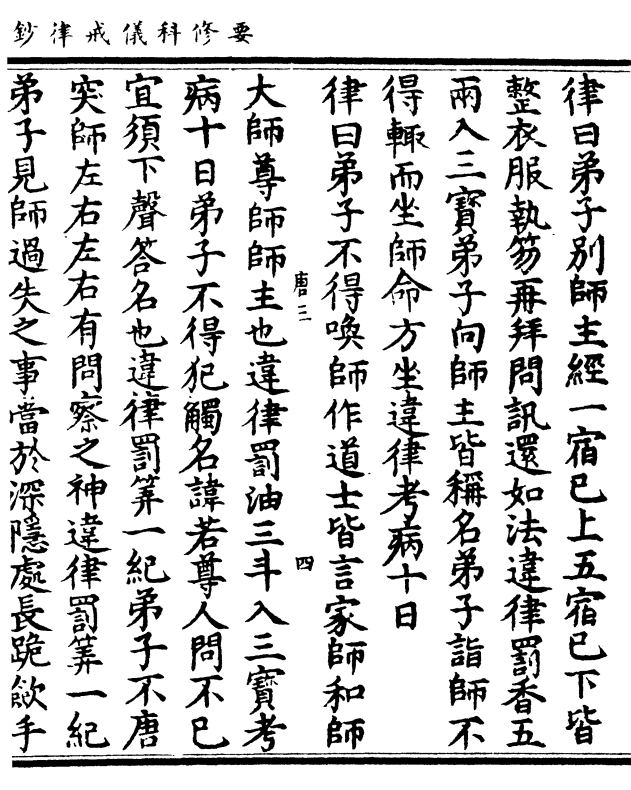 要修科儀戒律鈔
律曰弟子別師主經一宿已上五宿已下皆
整衣服執笏再拜問訊還如法違律罰香五
兩入三寶弟子向師主皆稱名弟子詣師不
得輙而坐師命方坐違律考病十日
律曰弟子不得喚師作道士皆言家師和師
唐三
四
大師尊師師主也違律罰油三斗入三寶考
病十日弟子不得犯觸名諱若尊人問不已
宜須下聲答名也違律罰筭一紀弟子不唐
突師左右左右有問察之神違律罰筭一紀
弟子見師過失之事當於深隱處長跪斂手